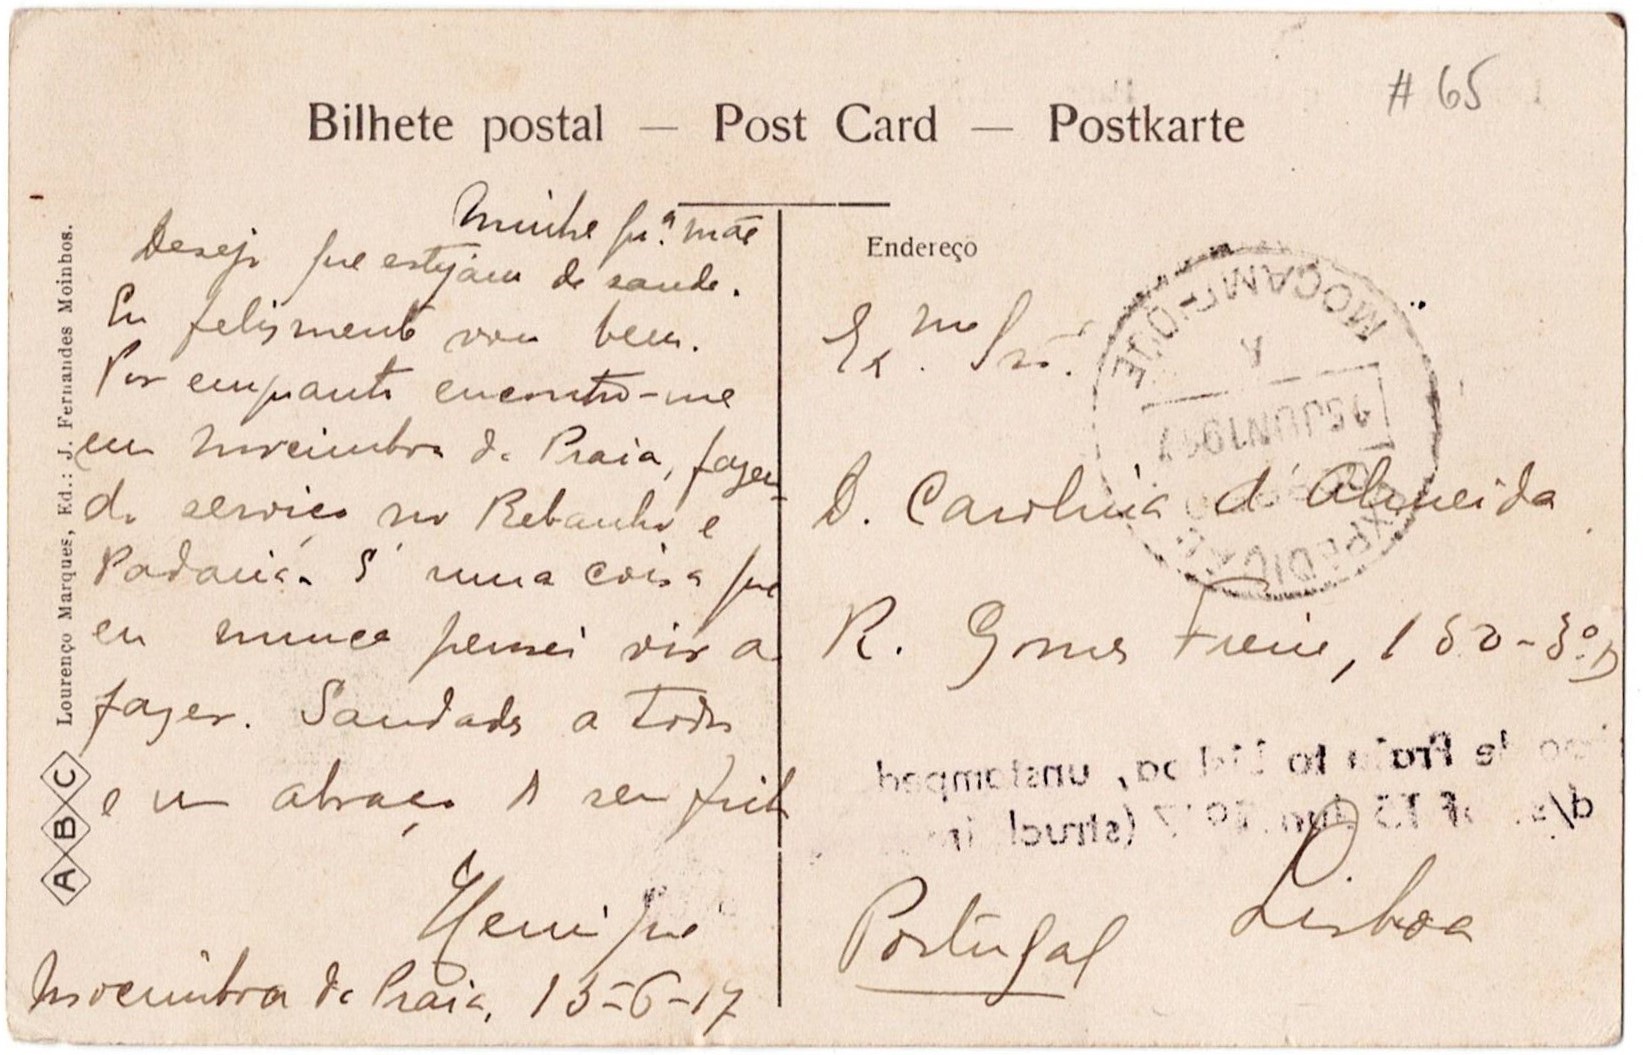 # 65
Bilhete postal — Post Card — Postkarte
Minha qu.ª mãe
Desejo que estejam de saude.
Eu felismente vou bem.
Por emquanto encontro-me
em Mocimboa da Praia, fazen-
do serviço no Rebanho e
Padaria. É uma coisa que
eu nunca pensei vir a
fazer. Saudades a todos
e um abraço do seu filho
Henrique
Mocimboa da Praia, 15-6-17
Lourenço Marques, Ed.: J. Fernandes Moinhos.
A B C
Endereço
Ex.ma Sra.
D. Carolina d'Almeida
R. Gomes Freire, 150-3º.D
Lisboa
Portugal
MOÇAMBIQUE
A
JUN 1917
EXPEDICAO
de Praia to Lisboa, unstamped
d/s. of 15 Jun. 1917 (struck in